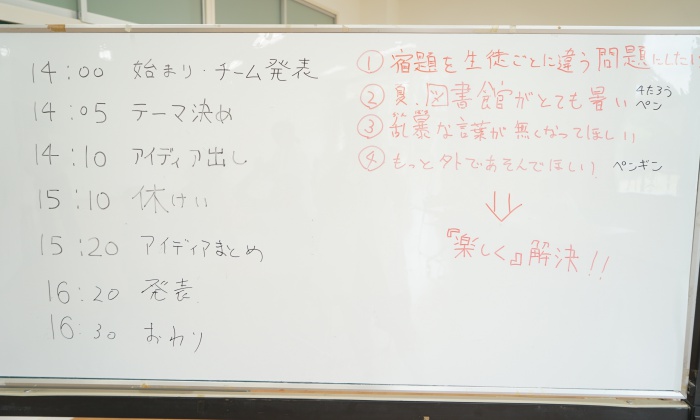 14:00 始まり・チーム発表
14:05 テーマ決め
14:10 アイディア出し
15:10 休けい
15:20 アイディアまとめ
16:20 発表
16:30 おわり
① 宿題を生徒ごとに違う問題にしたい
② 夏、図書館がとても暑い
ペン
③ 乱暴な言葉が無くなってほしい
④ もっと外であそんでほしい
ペンギン
『楽しく』解決!!